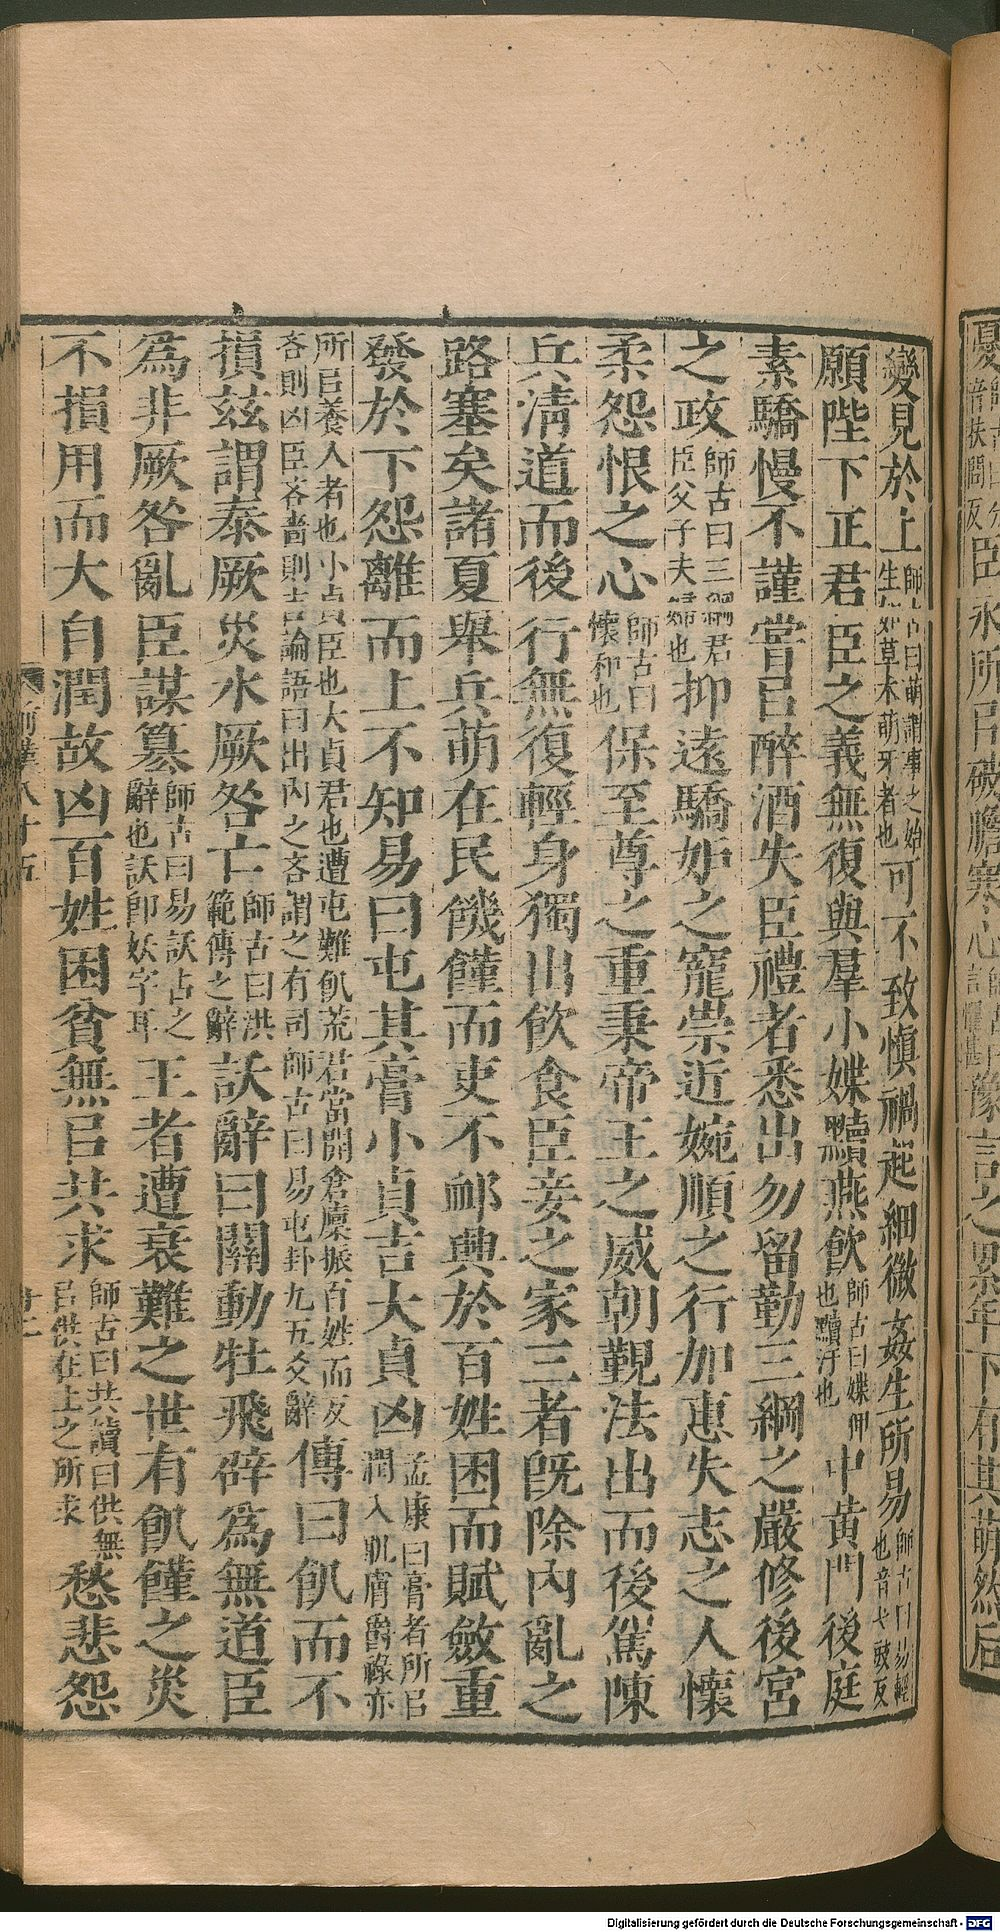 變見於上師古曰萌謂事之始生如草木萌牙者也可不致愼禍起細微姦生所易師古曰易輕也音弋豉反
願陛下正君臣之義無復與羣小媟黷燕飮師古曰媟狎也黷汙也中黄門後庭
素驕慢不謹嘗㠯醉酒失臣禮者悉出勿留勤三綱之嚴修後宮
之政師古曰三綱君臣父子夫婦也抑遠驕妒之寵崇近婉順之行加惠失志之人懷
柔怨恨之心師古曰懷和也保至尊之重秉帝王之威朝覲法出而後駕陳
兵淸道而後行無復輕身獨出飮食臣妾之家三者旣除內亂之
路塞矣諸夏舉兵萌在民饑饉而吏不䘏興於百姓困而賦斂重
發於下怨離而上不知易曰屯其膏小貞吉大貞凶孟康曰膏者所㠯潤人肌膚爵祿亦
所㠯養人者也小貞臣也大貞君也遭屯難飢荒君當開倉廩振百姓而反吝則凶臣吝嗇則吉論語曰出內之吝謂之有司師古曰易屯卦九五爻辭傳曰飢而不
損茲謂泰厥災水厥咎亡師古曰洪範傳之辭訞辭曰關動牡飛辟爲無道臣
爲非厥咎亂臣謀篡師古曰易訞占之辭也訞卽妖字耳王者遭衰難之世有飢饉之災
不損用而大自潤故凶百姓困貧無㠯共求師古曰共讀曰供無㠯供在上之所求愁悲怨
Digitalisierung gefördert durch die Deutsche Forschungsgemeinschaft - DFG